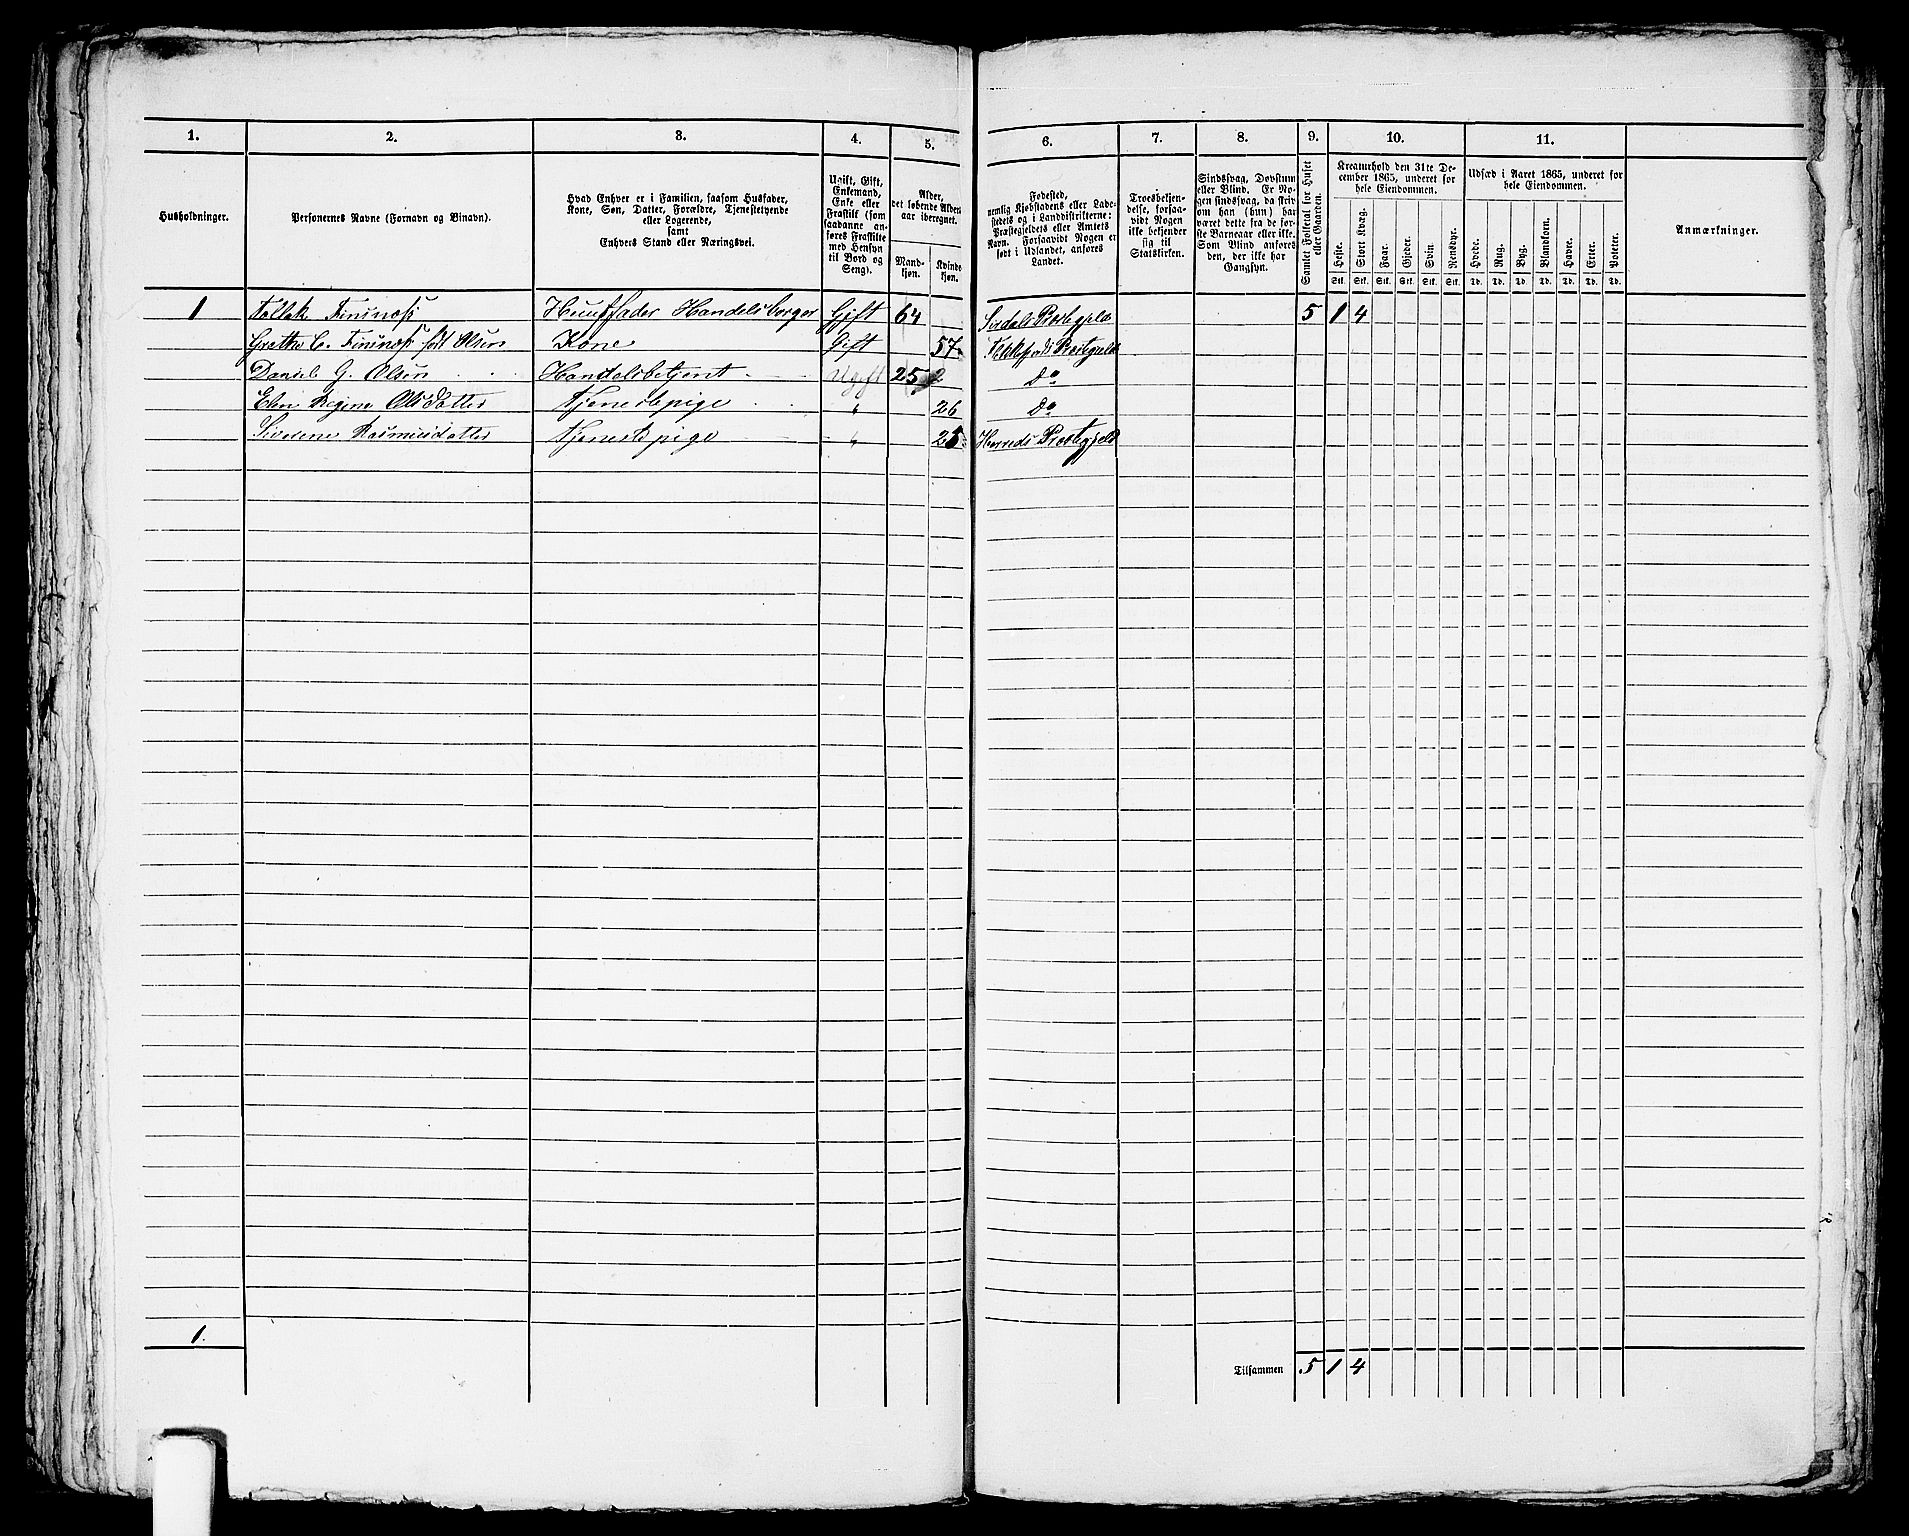 1. 2. 3. 4. 5. 6. 7. 8. 9. 10. 11.
Husholdninger.
Personernes Navne (Fornavn og Binavn).
Hvad Enhver er i Familien, saasom Husfader,
Kone, Søn, Datter, Forældre, Tjenestetyende
eller Logerende,
samt
Enhvers Stand eller Næringsvei.
Ugift, Gift,
Enkemand,
Enke eller
Fraskilt (som
saadanne an-
føres Fraskilte
med Hensyn
til Bord og
Seng).
Alder,
det løbende Alders-
aar iberegnet.
Mand-
kjøn.
Kvinde-
kjøn.
Fødested,
nemlig Kjøbstadens eller Lade-
stedets og i Landdistrikterne:
Præstegjeldets eller Amtets
Navn. Forsaavidt Nogen er
født i Udlandet, anføres
Landet.
Troesbekjen-
delse, forsaa-
vidt Nogen
ikke bekjender
sig til
Statskirken.
Sindssvag, Døvstum
eller Blind. Er No-
gen sindssvag, da skri-
ves om han (hun) har
været dette fra de før-
ste Barneaar eller ikke.
Som Blind anføres
den, der ikke har
Gangsyn.
Samlet Folketal for Huset
eller Gaarden.
Kreaturhold den 31te De-
cember 1865, underet for
hele Eiendommen.
Heste. Stort Kvæg. Faar. Gjeder. Svin. Rensdyr.
Stk. Stk. Stk. Stk. Stk. Stk.
Udsæd i Aaret 1865, underet for
hele Eiendommen.
Hvede. Rug. Byg. Blandkorn. Havre. Erter. Poteter.
Td. Td. Td. Td. Td. Td. Td.
Anmærkninger.
1 Tollak Finnnøs Huusfader Handelsborger Gift 64 Sirdals Præstegjeld 5 1 4
Grethe C. Finnnøs født Olsen Kone Gift 57 Flekkefjords Præstegjeld
Daniel G. Olsen Handelsbetjent Ugift 25 Do
Elen Regine Olsdatter Tjenestepige " 26 Do
Siverene Rasmusdatter Tjenestepige " 25 Herreds Præstegjeld
1.
Tilsammen 5 1 4